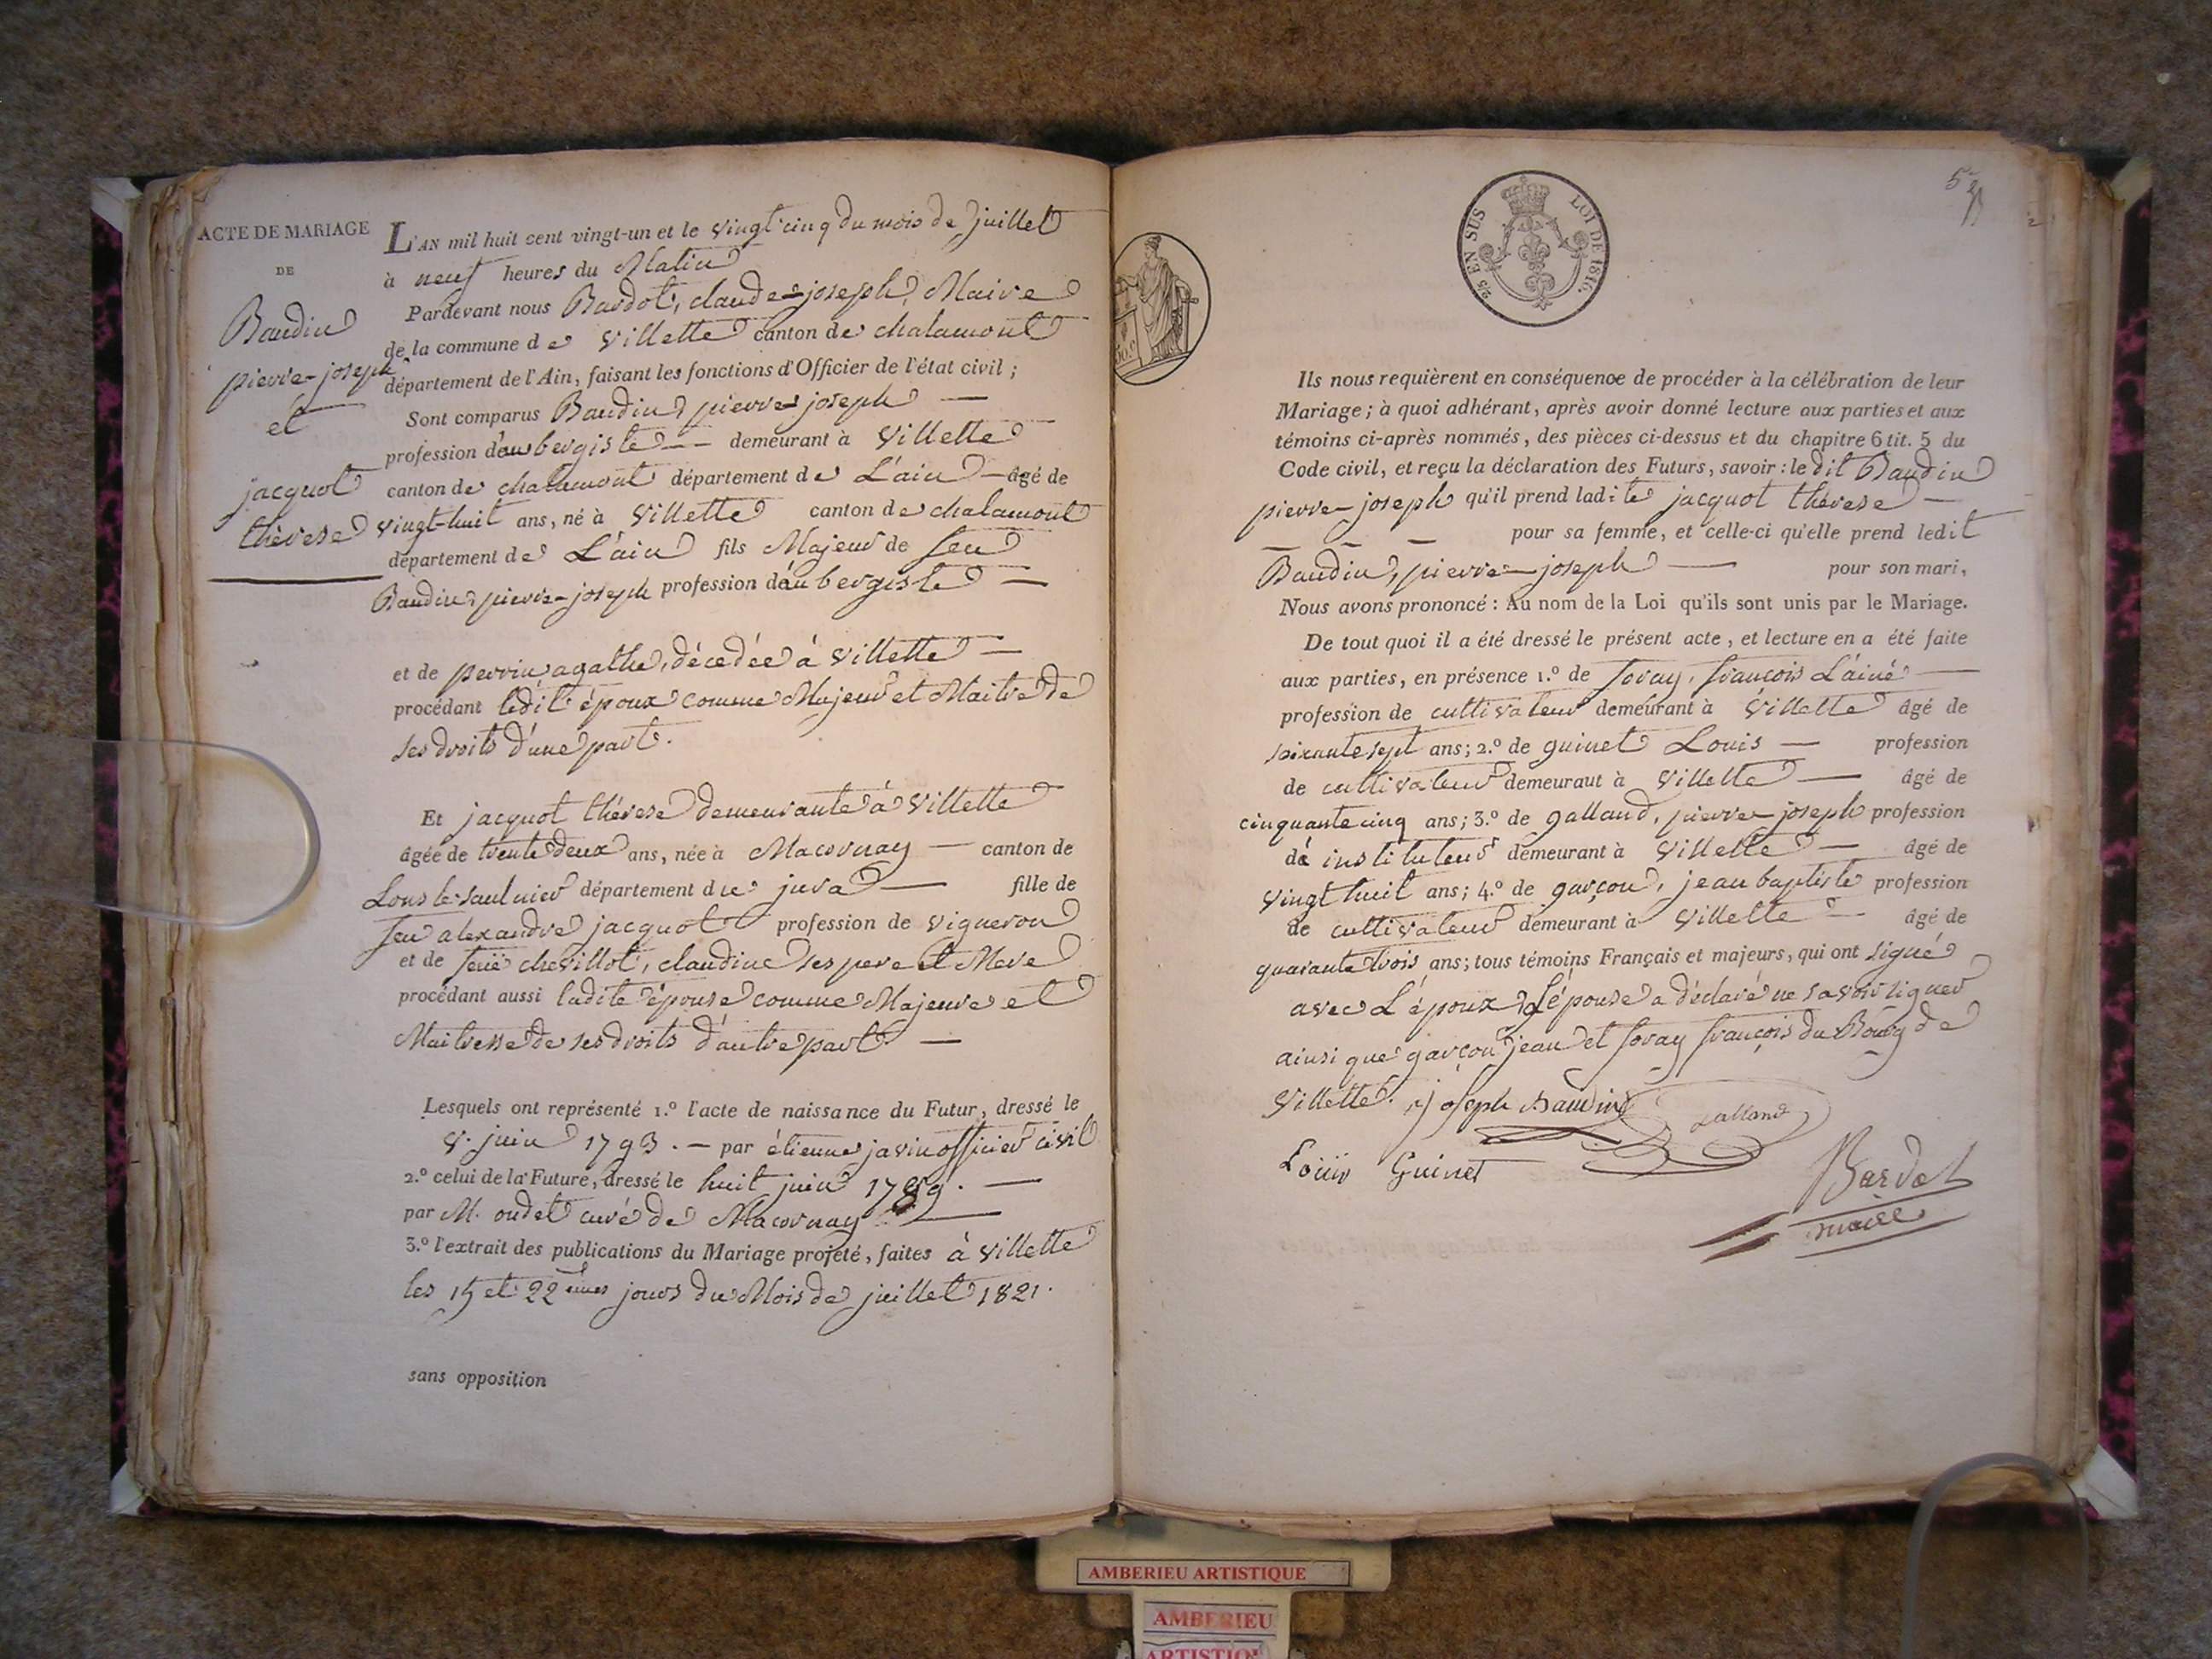 ACTE DE MARIAGE
DE
Baudin
pierre-joseph
et
jacquot
thérese
L'AN mil huit cent vingt-un et le vingt cinq du mois de juillet
à neuf heures du Matin
Pardevant nous Bardot, claude-joseph, Maire
de la commune de Villette canton de chalamont
département de l'Ain, faisant les fonctions d'Officier de l'état civil ;
Sont comparus Baudin, pierre joseph —
profession d'aubergiste — demeurant à Villette
canton de chalamont département de L'ain — âgé de
vingt-huit ans, né à Villette canton de chalamont
département de L'ain fils Majeur de feu
Baudin, pierre-joseph profession d'aubergiste —
et de perrin, agathe, décedée à Villette —
procédant ledit époux comme Majeur et Maitre de
ses droits d'une part.
Et jacquot thérese demeurante à Villette
âgée de trente deux ans, née à Macornay — canton de
Lons-le-saulnier département du jura — fille de
feu alexandre jacquot profession de vigneron
et de feuë chevillot, claudine ses pere et Mere
procédant aussi ladite épouse comme Majeure et
Maitresse de ses droits d'autre part —
Lesquels ont représenté 1.º l'acte de naissance du Futur, dressé le
V. juin 1793. — par étienne javin officier civil
2.º celui de la Future, dressé le huit juin 1789. —
par M. oudet curé de Macornay —
3.º l'extrait des publications du Mariage projeté, faites à Villette
les 15 et 22 emes jours du Mois de juillet 1821.
sans opposition
52
2/5 EN SUS
LOI DE 1816.
50.c
Ils nous requièrent en conséquence de procéder à la célébration de leur
Mariage ; à quoi adhérant, après avoir donné lecture aux parties et aux
témoins ci-après nommés, des pièces ci-dessus et du chapitre 6 tit. 5 du
Code civil, et reçu la déclaration des Futurs, savoir : le dit Baudin
pierre-joseph qu'il prend ladite jacquot thérese —
— — — pour sa femme, et celle-ci qu'elle prend ledit
Baudin, pierre-joseph — pour son mari,
Nous avons prononcé : Au nom de la Loi qu'ils sont unis par le Mariage.
De tout quoi il a été dressé le présent acte, et lecture en a été faite
aux parties, en présence 1.º de foray, françois L'ainé —
profession de cultivateur demeurant à Villette âgé de
soixante sept ans ; 2.º de guinet Louis — profession
de cultivateur demeuraut à Villette — âgé de
cinquante cinq ans ; 3.º de galland, pierre-joseph profession
de instituteur demeurant à Villette — âgé de
vingt huit ans ; 4.º de garçon, jean baptiste profession
de cultivateur demeurant à Villette — âgé de
quarante trois ans ; tous témoins Français et majeurs, qui ont signé
avec L'époux, L'épouse a déclaré ne savoir signer
ainsi que garçon jean et foray françois du Bourg de
Villette. joseph Baudin
Galland
Louis Guinet
Bardot
maire
AMBERIEU ARTISTIQUE
AMBERIEU
ARTISTIQUE